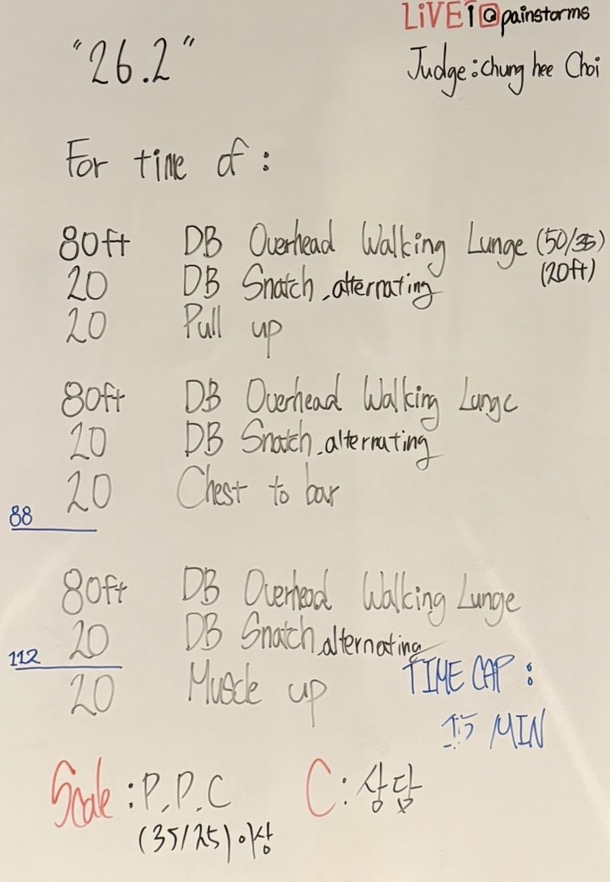 LiVE↑@painstorms
"26.2"
Judge: chung hee Choi
For time of :
80ft DB Overhead Walking Lunge (50/35)
(20ft)
20 DB Snatch, alternating
20 Pull up
80ft DB Overhead Walking Lunge
20 DB Snatch, alternating
20 Chest to bar
88
80ft DB Overhead Walking Lunge
20 DB Snatch, alternating
112
20 Muscle up
TIME CAP :
15 MIN
Scale : P, P, C
(35/25) 이상
C : 상담